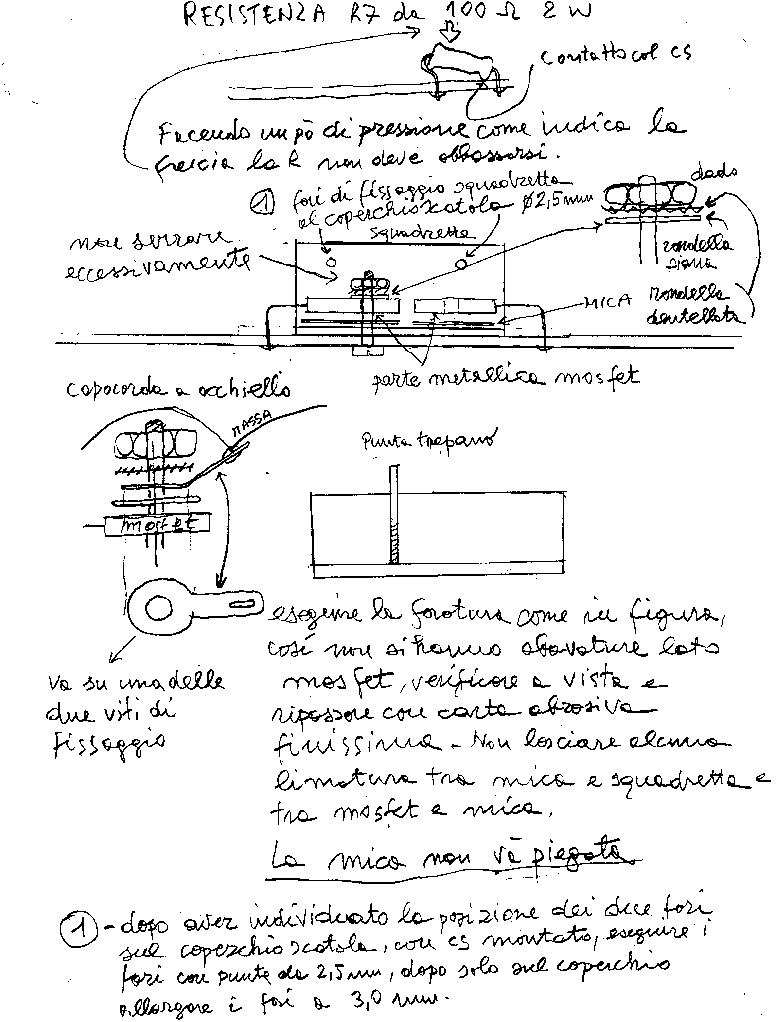 RESISTENZA R7 da 100 Ω 2 W
Contatto col cs
Facendo un pò di pressione come indica la
freccia la R non deve abbassarsi.
1 fori di fissaggio squadretta
al coperchio scatola ø 2,5 mm
dado
squadretta
non serrare
eccessivamente
rondella
piana
MICA
rondella
dentellata
capocorda a occhiello
parte metallica mosfet
MASSA
Punta trapano
mosfet
eseguire la foratura come in figura,
così non si hanno sbavature lato
mosfet, verificare a vista e
ripassare con carta abrasiva
finissima - Non lasciare alcuna
limatura tra mica e squadretta e
tra mosfet e mica.
La mica non và piegata
va su una delle
due viti di
fissaggio
1 - dopo aver individuato la posizione dei due fori
sul coperchio scatola, con cs montato, eseguire i
fori con punte da 2,5 mm, dopo solo sul coperchio
allargare i fori a 3,0 mm.